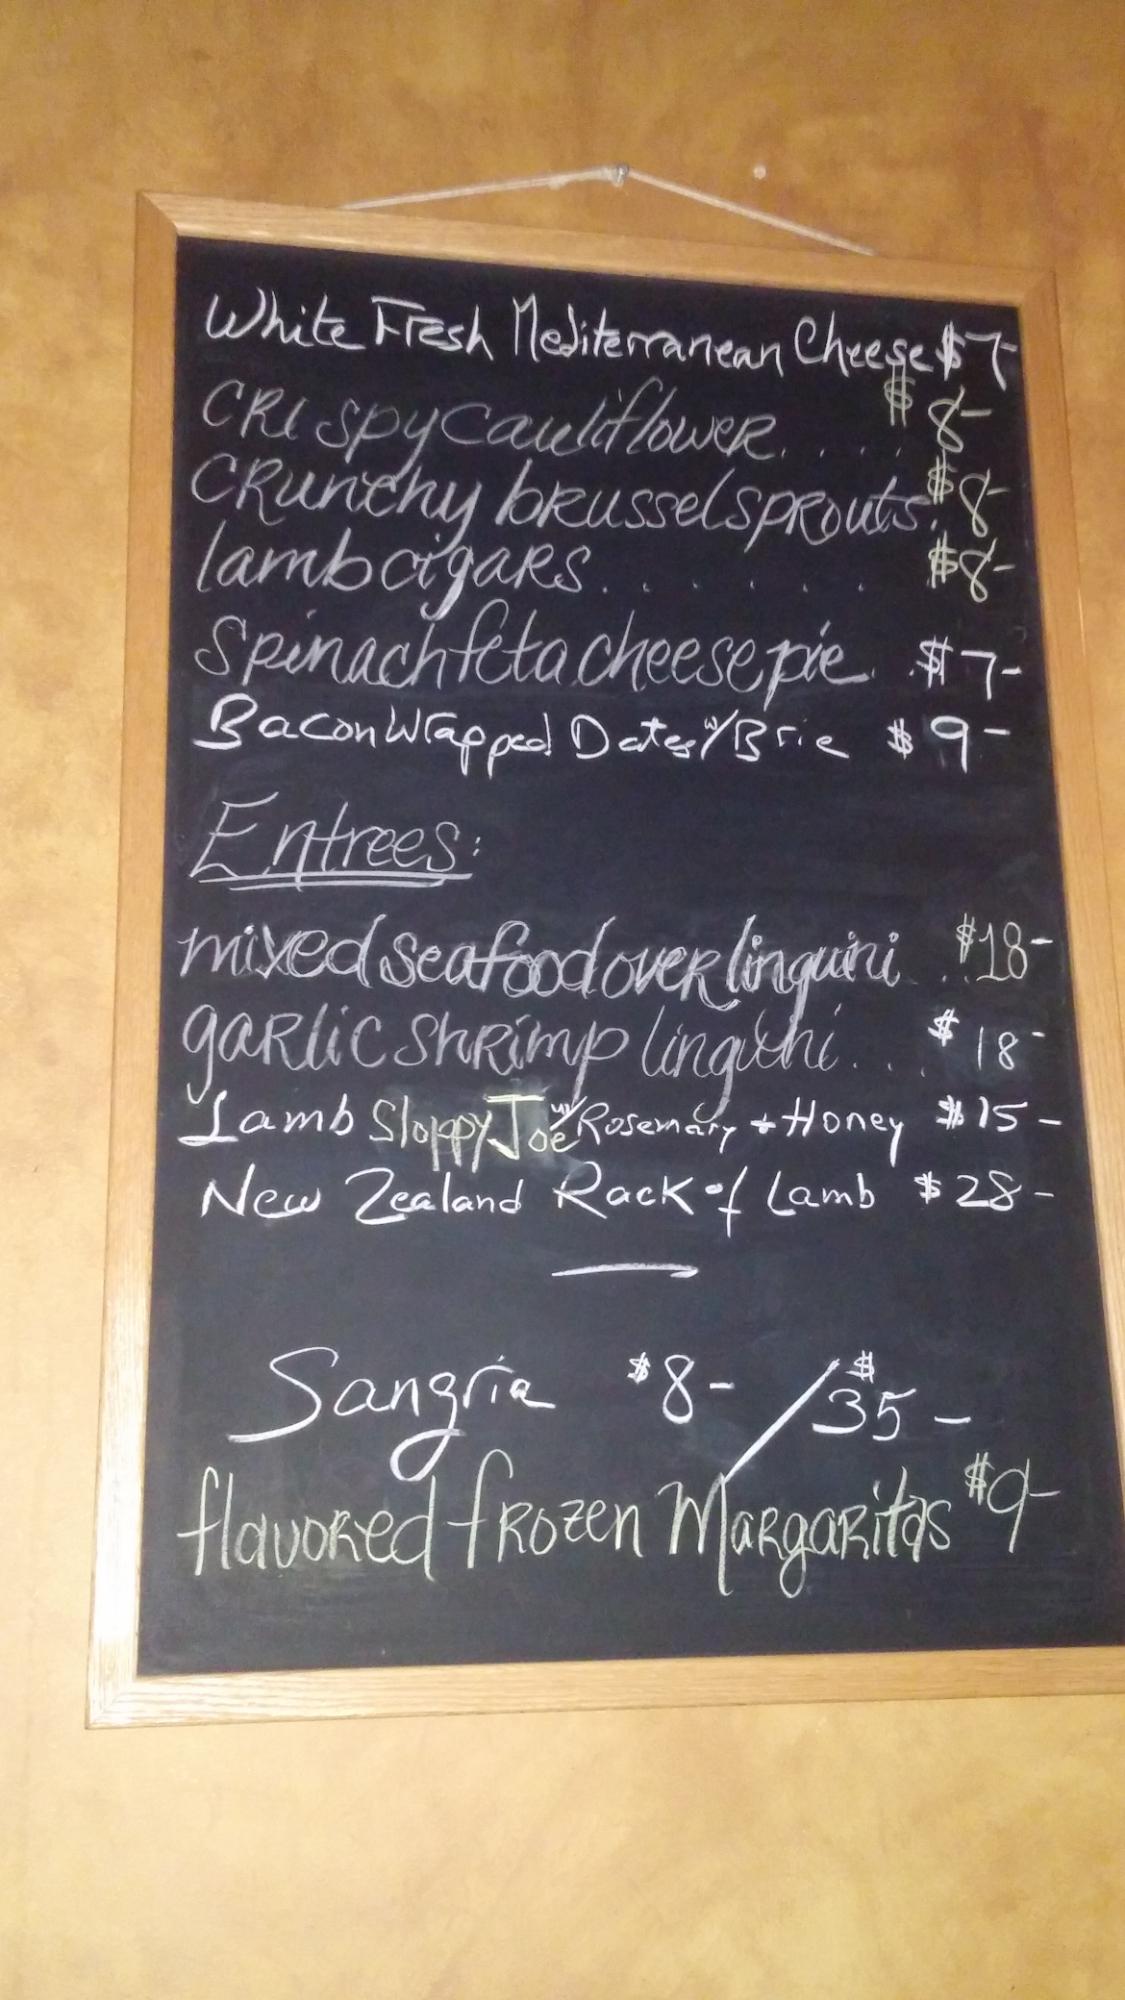 White Fresh Mediterranean Cheese $7-
CRispy cauliflower..... $8-
CRunchy brussel sprouts. $8-
lamb cigars....... $8-
Spinach feta cheese pie.. $7-
Bacon Wrapped Dates w/ Brie $9-
Entrees:
mixed seafood over linguini.. $18-
garlic shrimp linguini.... $18-
Lamb Sloppy Joe w/ Rosemary + Honey $15-
New Zealand Rack of Lamb $28-
Sangria $8- / $35-
flavored frozen Margaritas $9-